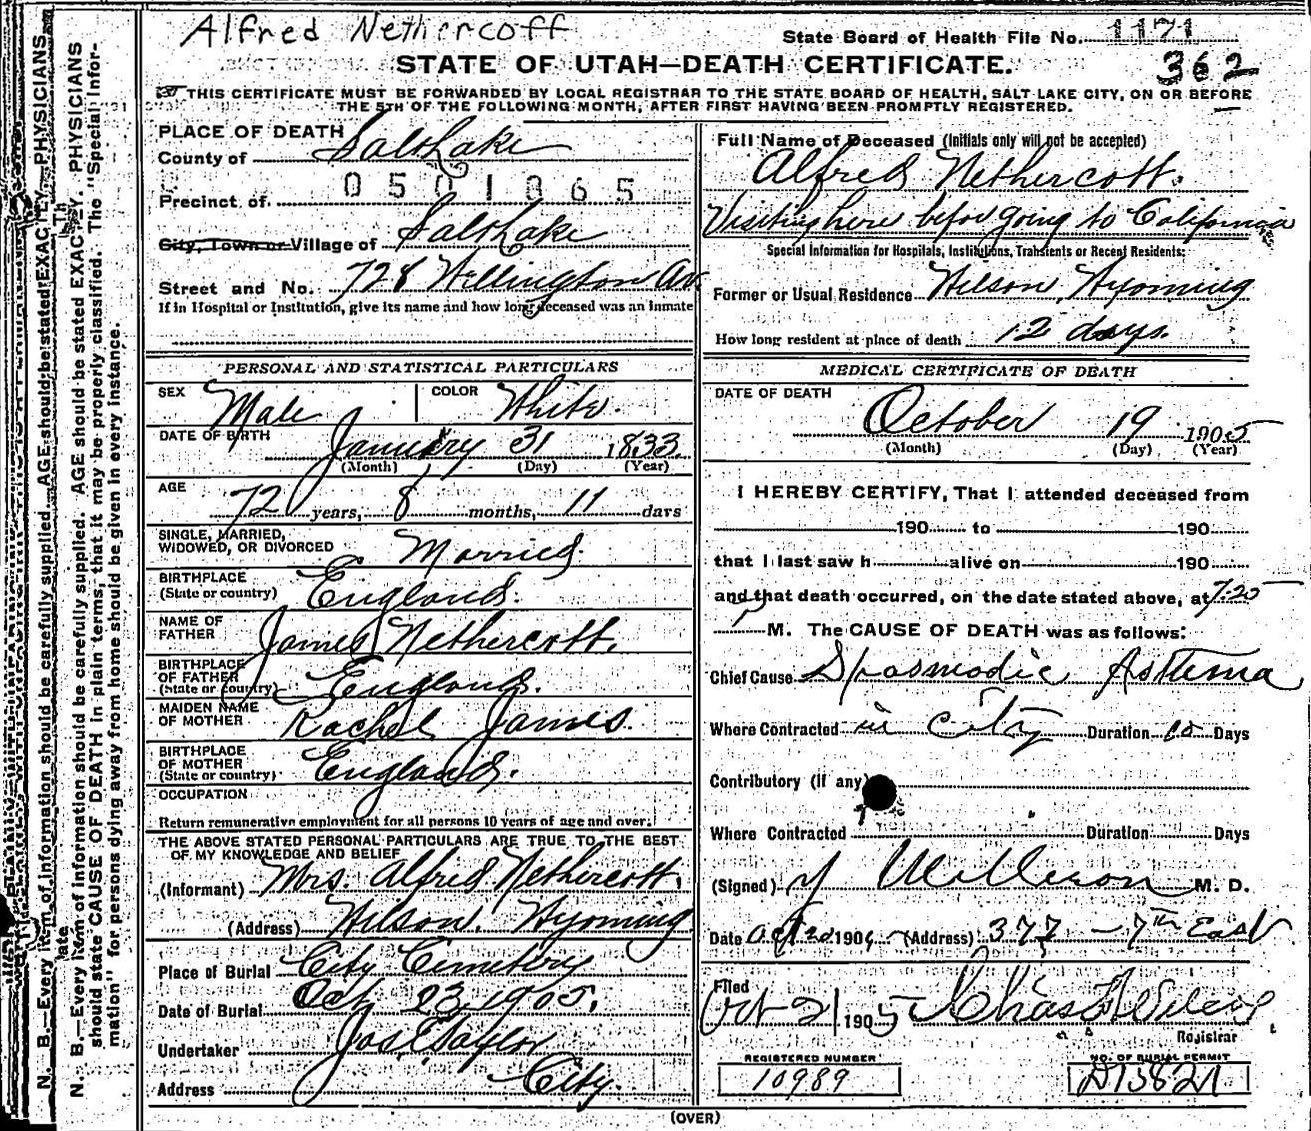 Alfred Nethercoff
State Board of Health File No. 1171
362
STATE OF UTAH—DEATH CERTIFICATE.
THIS CERTIFICATE MUST BE FORWARDED BY LOCAL REGISTRAR TO THE STATE BOARD OF HEALTH, SALT LAKE CITY, ON OR BEFORE
THE 5TH OF THE FOLLOWING MONTH, AFTER FIRST HAVING BEEN PROMPTLY REGISTERED.
PLACE OF DEATH
County of Salt Lake
0501865
Precinct of
City, Town or Village of Salt Lake
Street and No. 728 Wellington Av
If in Hospital or Institution, give its name and how long deceased was an inmate
PERSONAL AND STATISTICAL PARTICULARS
SEX Male COLOR White.
DATE OF BIRTH January 31 1833.
(Month) (Day) (Year)
AGE 72 years, 8 months, 11 days
SINGLE, MARRIED,
WIDOWED, OR DIVORCED Married.
BIRTHPLACE
(State or country) England.
NAME OF
FATHER James Nethercott.
BIRTHPLACE
OF FATHER
(State or country) England.
MAIDEN NAME
OF MOTHER Rachel James.
BIRTHPLACE
OF MOTHER
(State or country) England.
OCCUPATION
Return remunerative employment for all persons 10 years of age and over.
THE ABOVE STATED PERSONAL PARTICULARS ARE TRUE TO THE BEST
OF MY KNOWLEDGE AND BELIEF
(Informant) Mrs. Alfred Nethercott.
(Address) Wilson, Wyoming
Place of Burial City Cemetery
Date of Burial Oct 23 1905.
Undertaker Jos. E. Taylor
Address City.
Full Name of Deceased (Initials only will not be accepted)
Alfred Nethercott.
Visiting here befor going to California
Special Information for Hospitals, Institutions, Transients or Recent Residents:
Former or Usual Residence Wilson, Wyoming
How long resident at place of death 12 days.
MEDICAL CERTIFICATE OF DEATH
DATE OF DEATH
October 19 1905
(Month) (Day) (Year)
I HEREBY CERTIFY, That I attended deceased from
190 to 190
that I last saw h alive on 190
and that death occurred, on the date stated above, at 7.25
P M. The CAUSE OF DEATH was as follows:
Chief Cause Spasmodic Asthma
Where Contracted in City Duration 10 Days
Contributory (if any)
Where Contracted Duration Days
(Signed) M. D.
Date Oct 190 (Address) 377 - 7th East
Filed
Oct 21 1905 Chas
Registrar
REGISTERED NUMBER
10989
NO. OF BURIAL PERMIT
(OVER)
N. B.—Every item of information should be carefully supplied. AGE should be stated EXACTLY. PHYSICIANS
N. B.—Every item of information should be carefully supplied. AGE should be stated EXACTLY. PHYSICIANS
should state CAUSE OF DEATH in plain terms, that it may be properly classified. The "Special Infor-
mation" for persons dying away from home should be given in every instance.